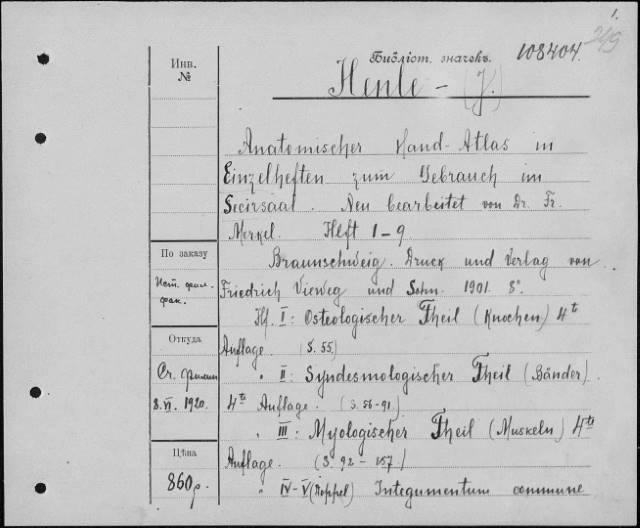 1.
249
Инв.
№
Библіот. значекъ. 108404.
Henle - (J.)
Anatomischer Hand-Atlas in
Einzelheften zum Gebrauch im
Secirsaal. Neu bearbeitet von Dr. Fr.
Merkel. Heft 1-9
Braunschweig. Druck und Verlag von
Friedrich Vieweg und Sohn. 1901. 8°.
Hf. I: Osteologischer Theil (Knochen) 4te
Auflage. (S. 55.)
" II: Syndesmologischer Theil (Bänder).
4te Auflage. (S. 56-91).
" III: Myologischer Theil (Muskeln) 4te
Auflage. (S. 92-157)
" IV-V (Doppel) Integumentum commune
По заказу
Ист. фил.
фак.
Откуда
Ст.
8.VI. 1920.
Цѣна
860 р.